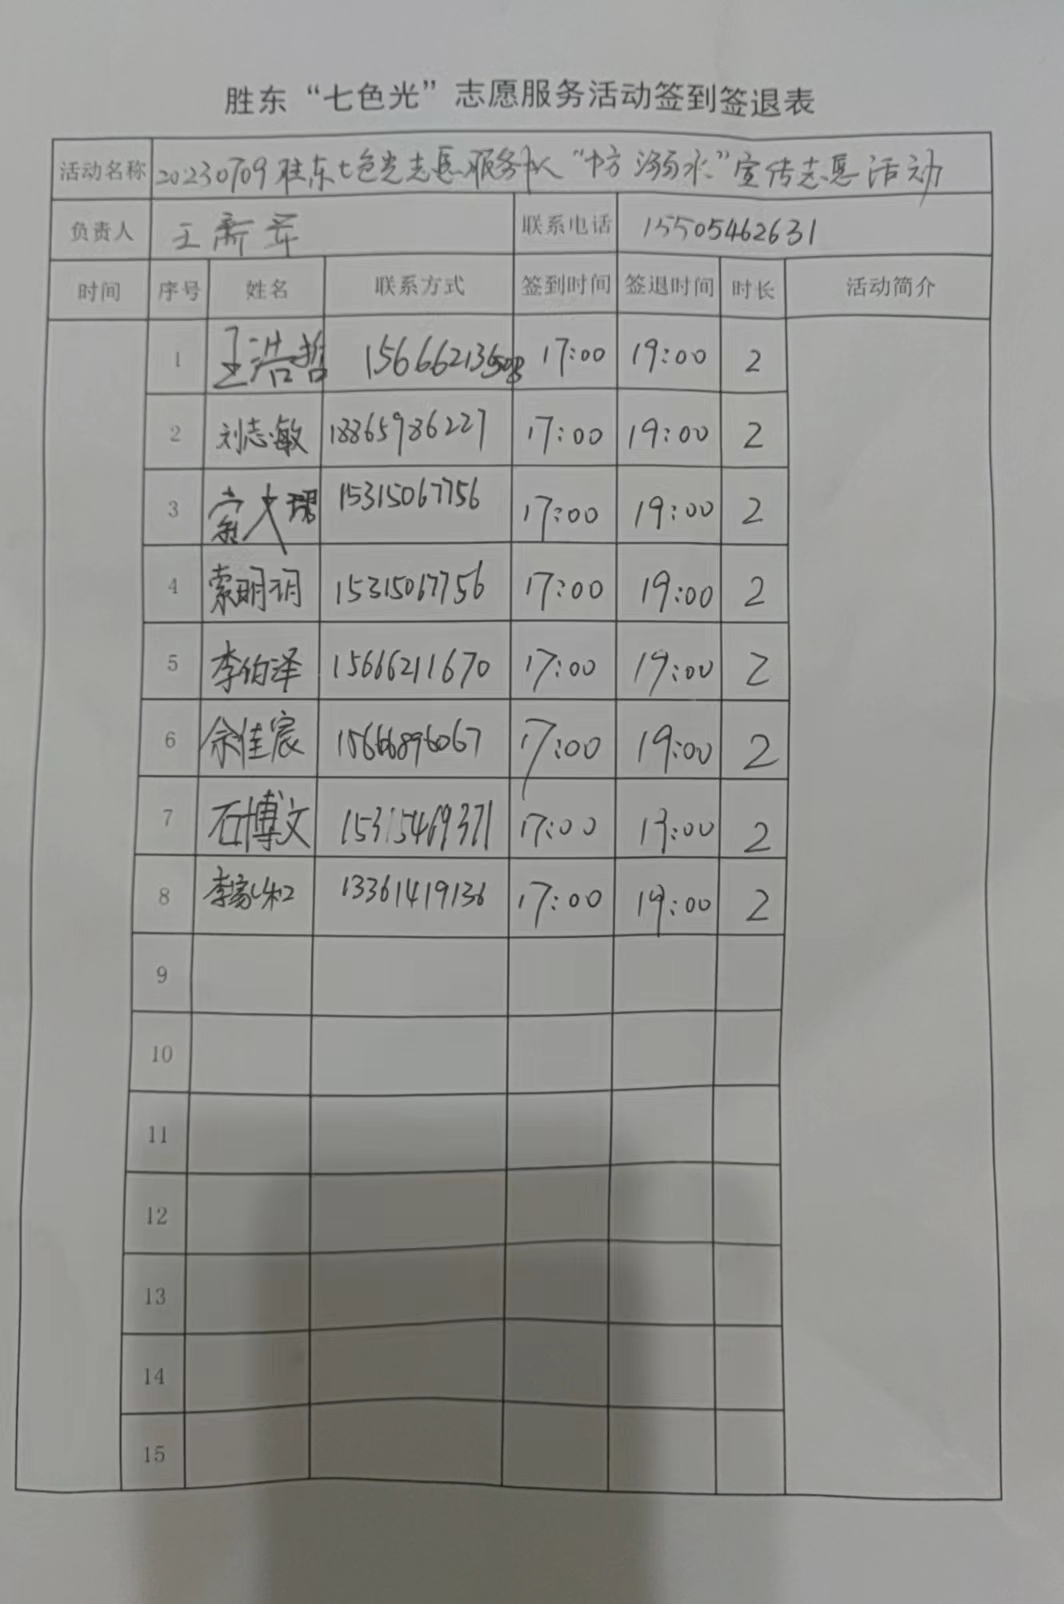 胜东“七色光”志愿服务活动签到签退表
活动名称 20230709胜东七色光志愿服务队“防溺水”宣传志愿活动
负责人 王新 联系电话 15505462631
时间 序号 姓名 联系方式 签到时间 签退时间 时长 活动简介
1 王浩哲 17:00 19:00 2
2 刘志敏 18865986227 17:00 19:00 2
3 15315067756 17:00 19:00 2
4 索明玥 15315067756 17:00 19:00 2
5 李伯泽 15666211670 17:00 19:00 2
6 余佳宸 15666896067 17:00 19:00 2
7 石博文 15315469371 17:00 19:00 2
8 李家和 13361419136 17:00 19:00 2
9
10
11
12
13
14
15